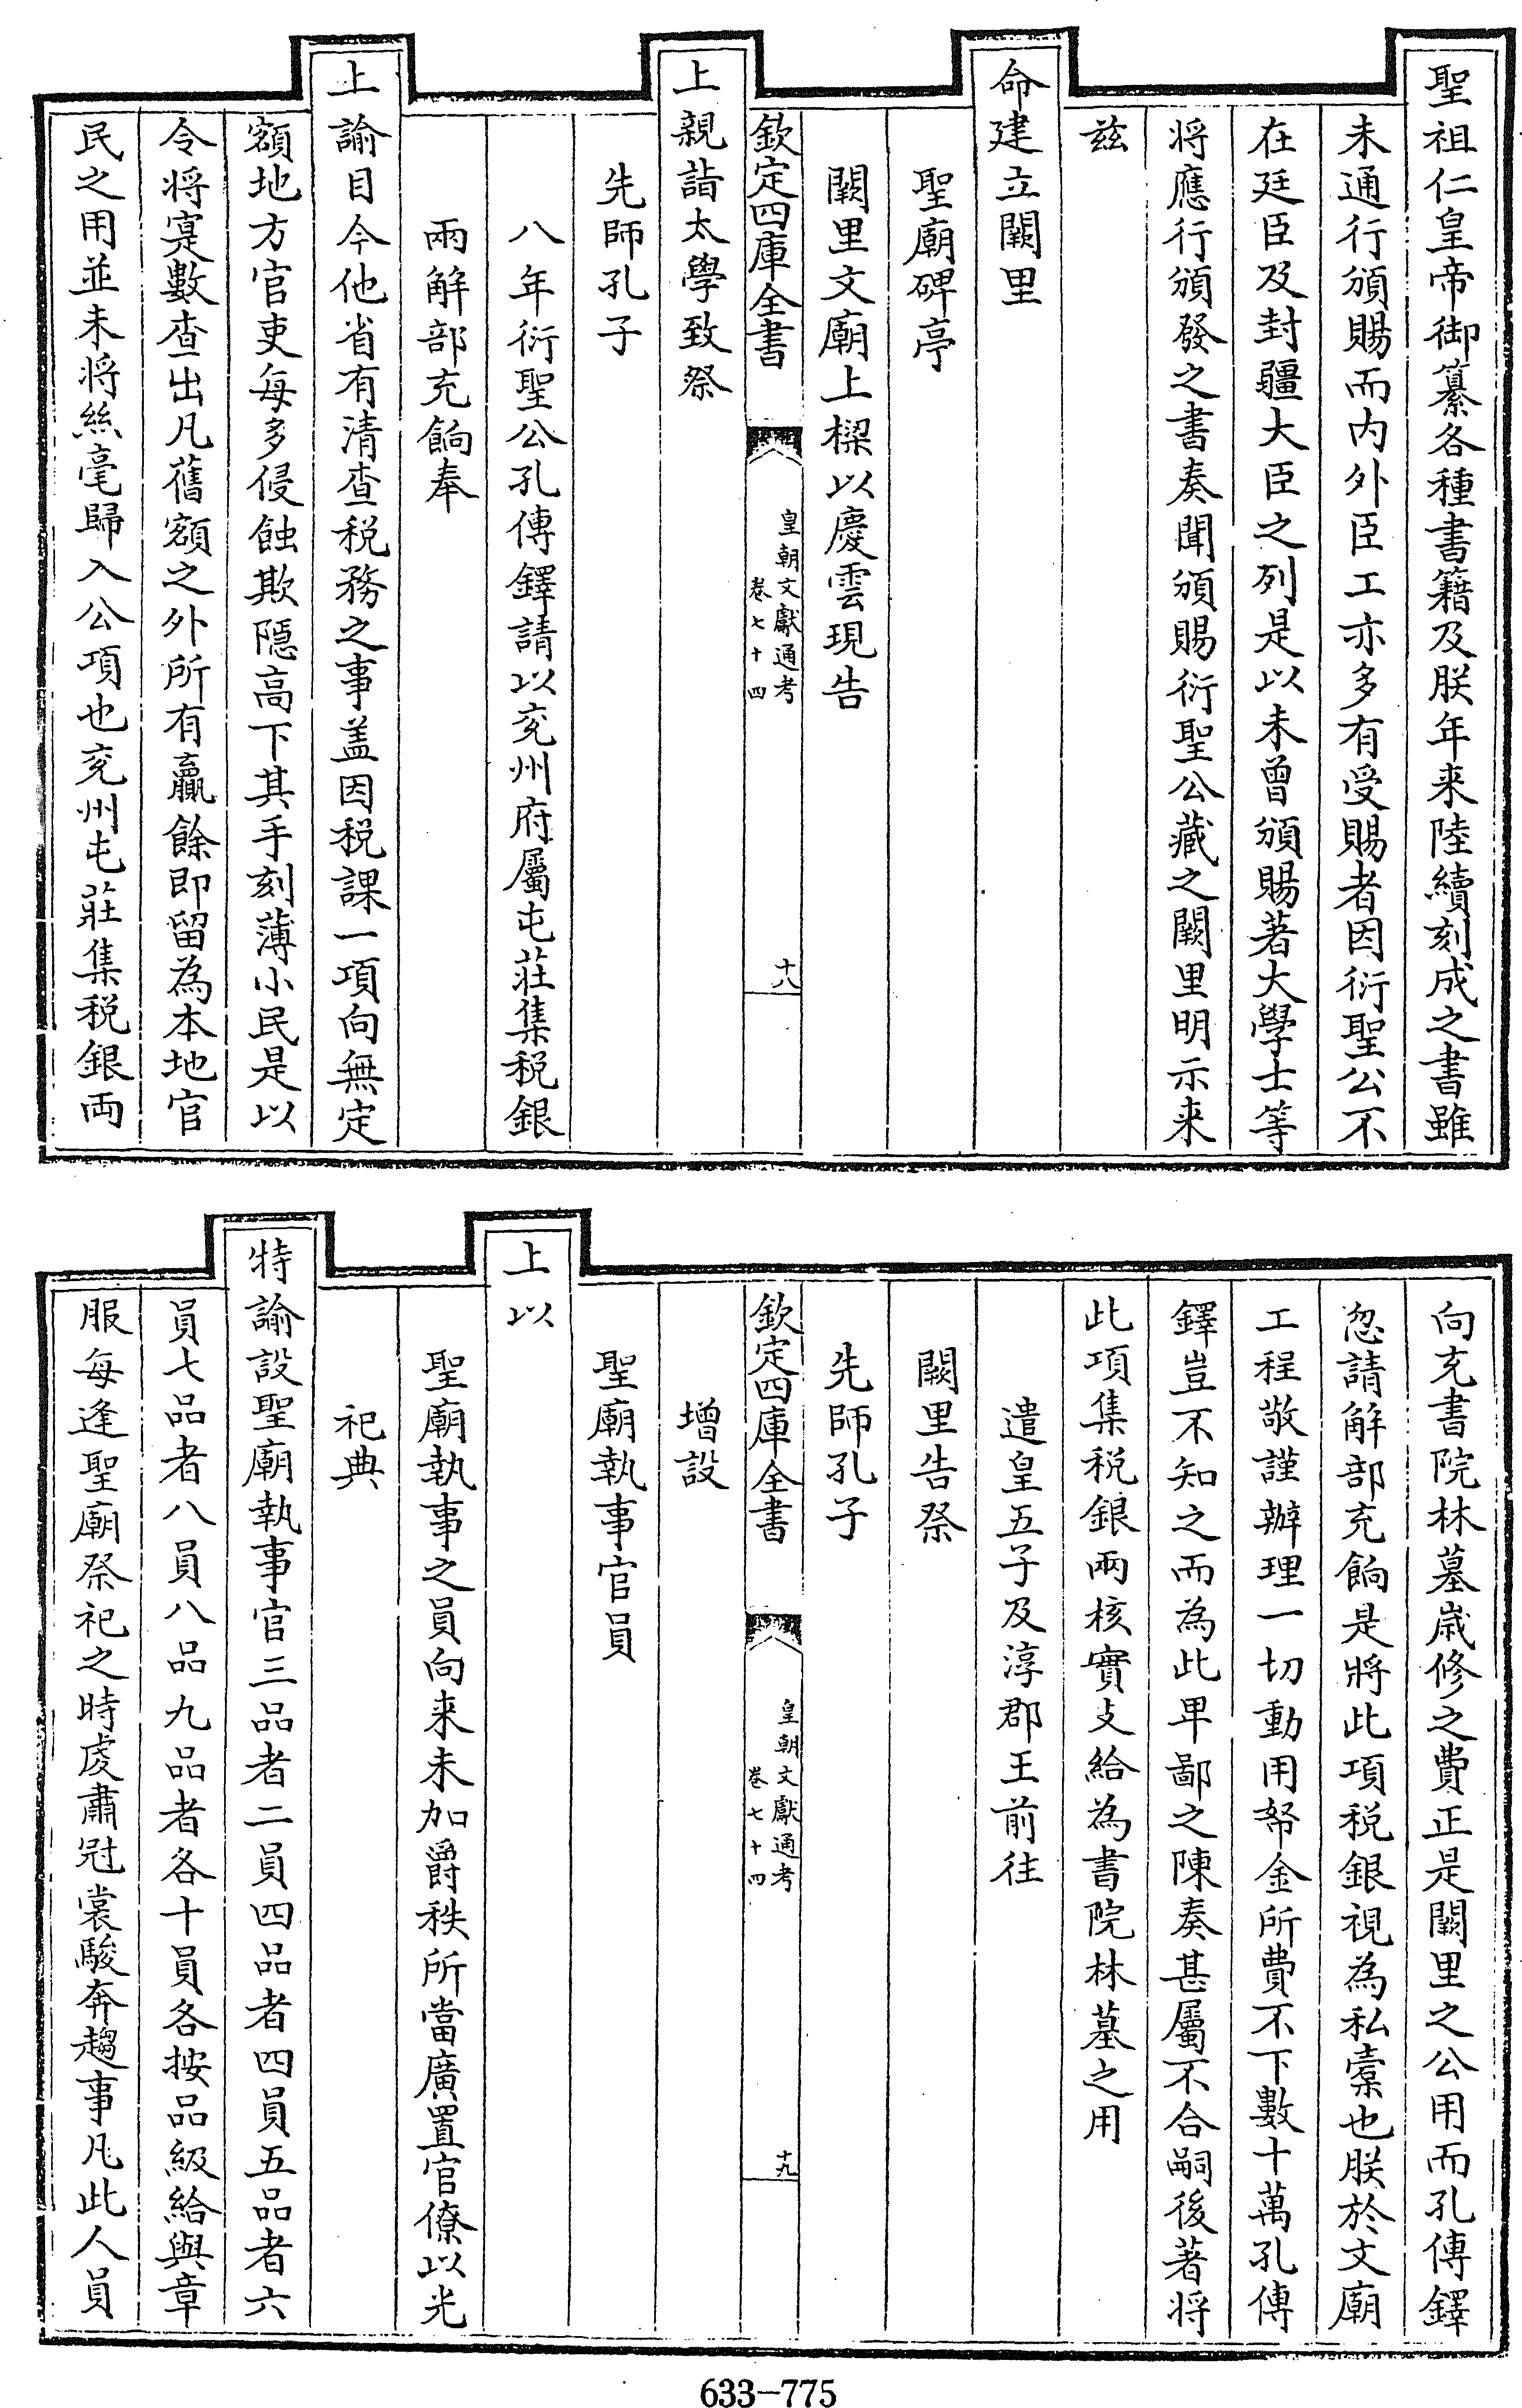 聖祖仁皇帝御纂各種書籍及朕年来陸續刻成之書雖
未通行頒賜而内外臣工亦多有受賜者因衍聖公不
在廷臣及封疆大臣之列是以未曾頒賜著大學士等
将應行頒發之書奏聞頒賜衍聖公藏之闕里明示来
兹
命建立闕里
聖廟碑亭
闕里文廟上樑以慶雲現告
欽定四庫全書
皇朝文獻通考
卷七十四
十八
上親詣太學致祭
先師孔子
八年衍聖公孔傳鐸請以兖州府屬屯莊集税銀
兩解部充餉奉
上諭目今他省有清查税務之事盖因税課一項向無定
額地方官吏每多侵蝕欺隱高下其手刻薄小民是以
令将寔數查出凡舊額之外所有贏餘即留為本地官
民之用並未将絲毫歸入公項也兖州屯莊集税銀両
向充書院林墓嵗修之費正是闕里之公用而孔傳鐸
忽請解部充餉是將此項税銀視為私槖也朕於文廟
工程敬謹辦理一切動用帑金所費不下數十萬孔傳
鐸豈不知之而為此卑鄙之陳奏甚屬不合嗣後著将
此項集税銀兩核實支給為書院林墓之用
遣皇五子及淳郡王前往
闕里告祭
先師孔子
欽定四庫全書
皇朝文獻通考
卷七十四
十九
增設
聖廟執事官員
上以
聖廟執事之員向来未加爵秩所當廣置官僚以光
祀典
特諭設聖廟執事官三品者二員四品者四員五品者六
員七品者八員八品九品者各十員各按品級給與章
服每逢聖廟祭祀之時䖍肅冠裳駿奔趨事凡此人員
633-775